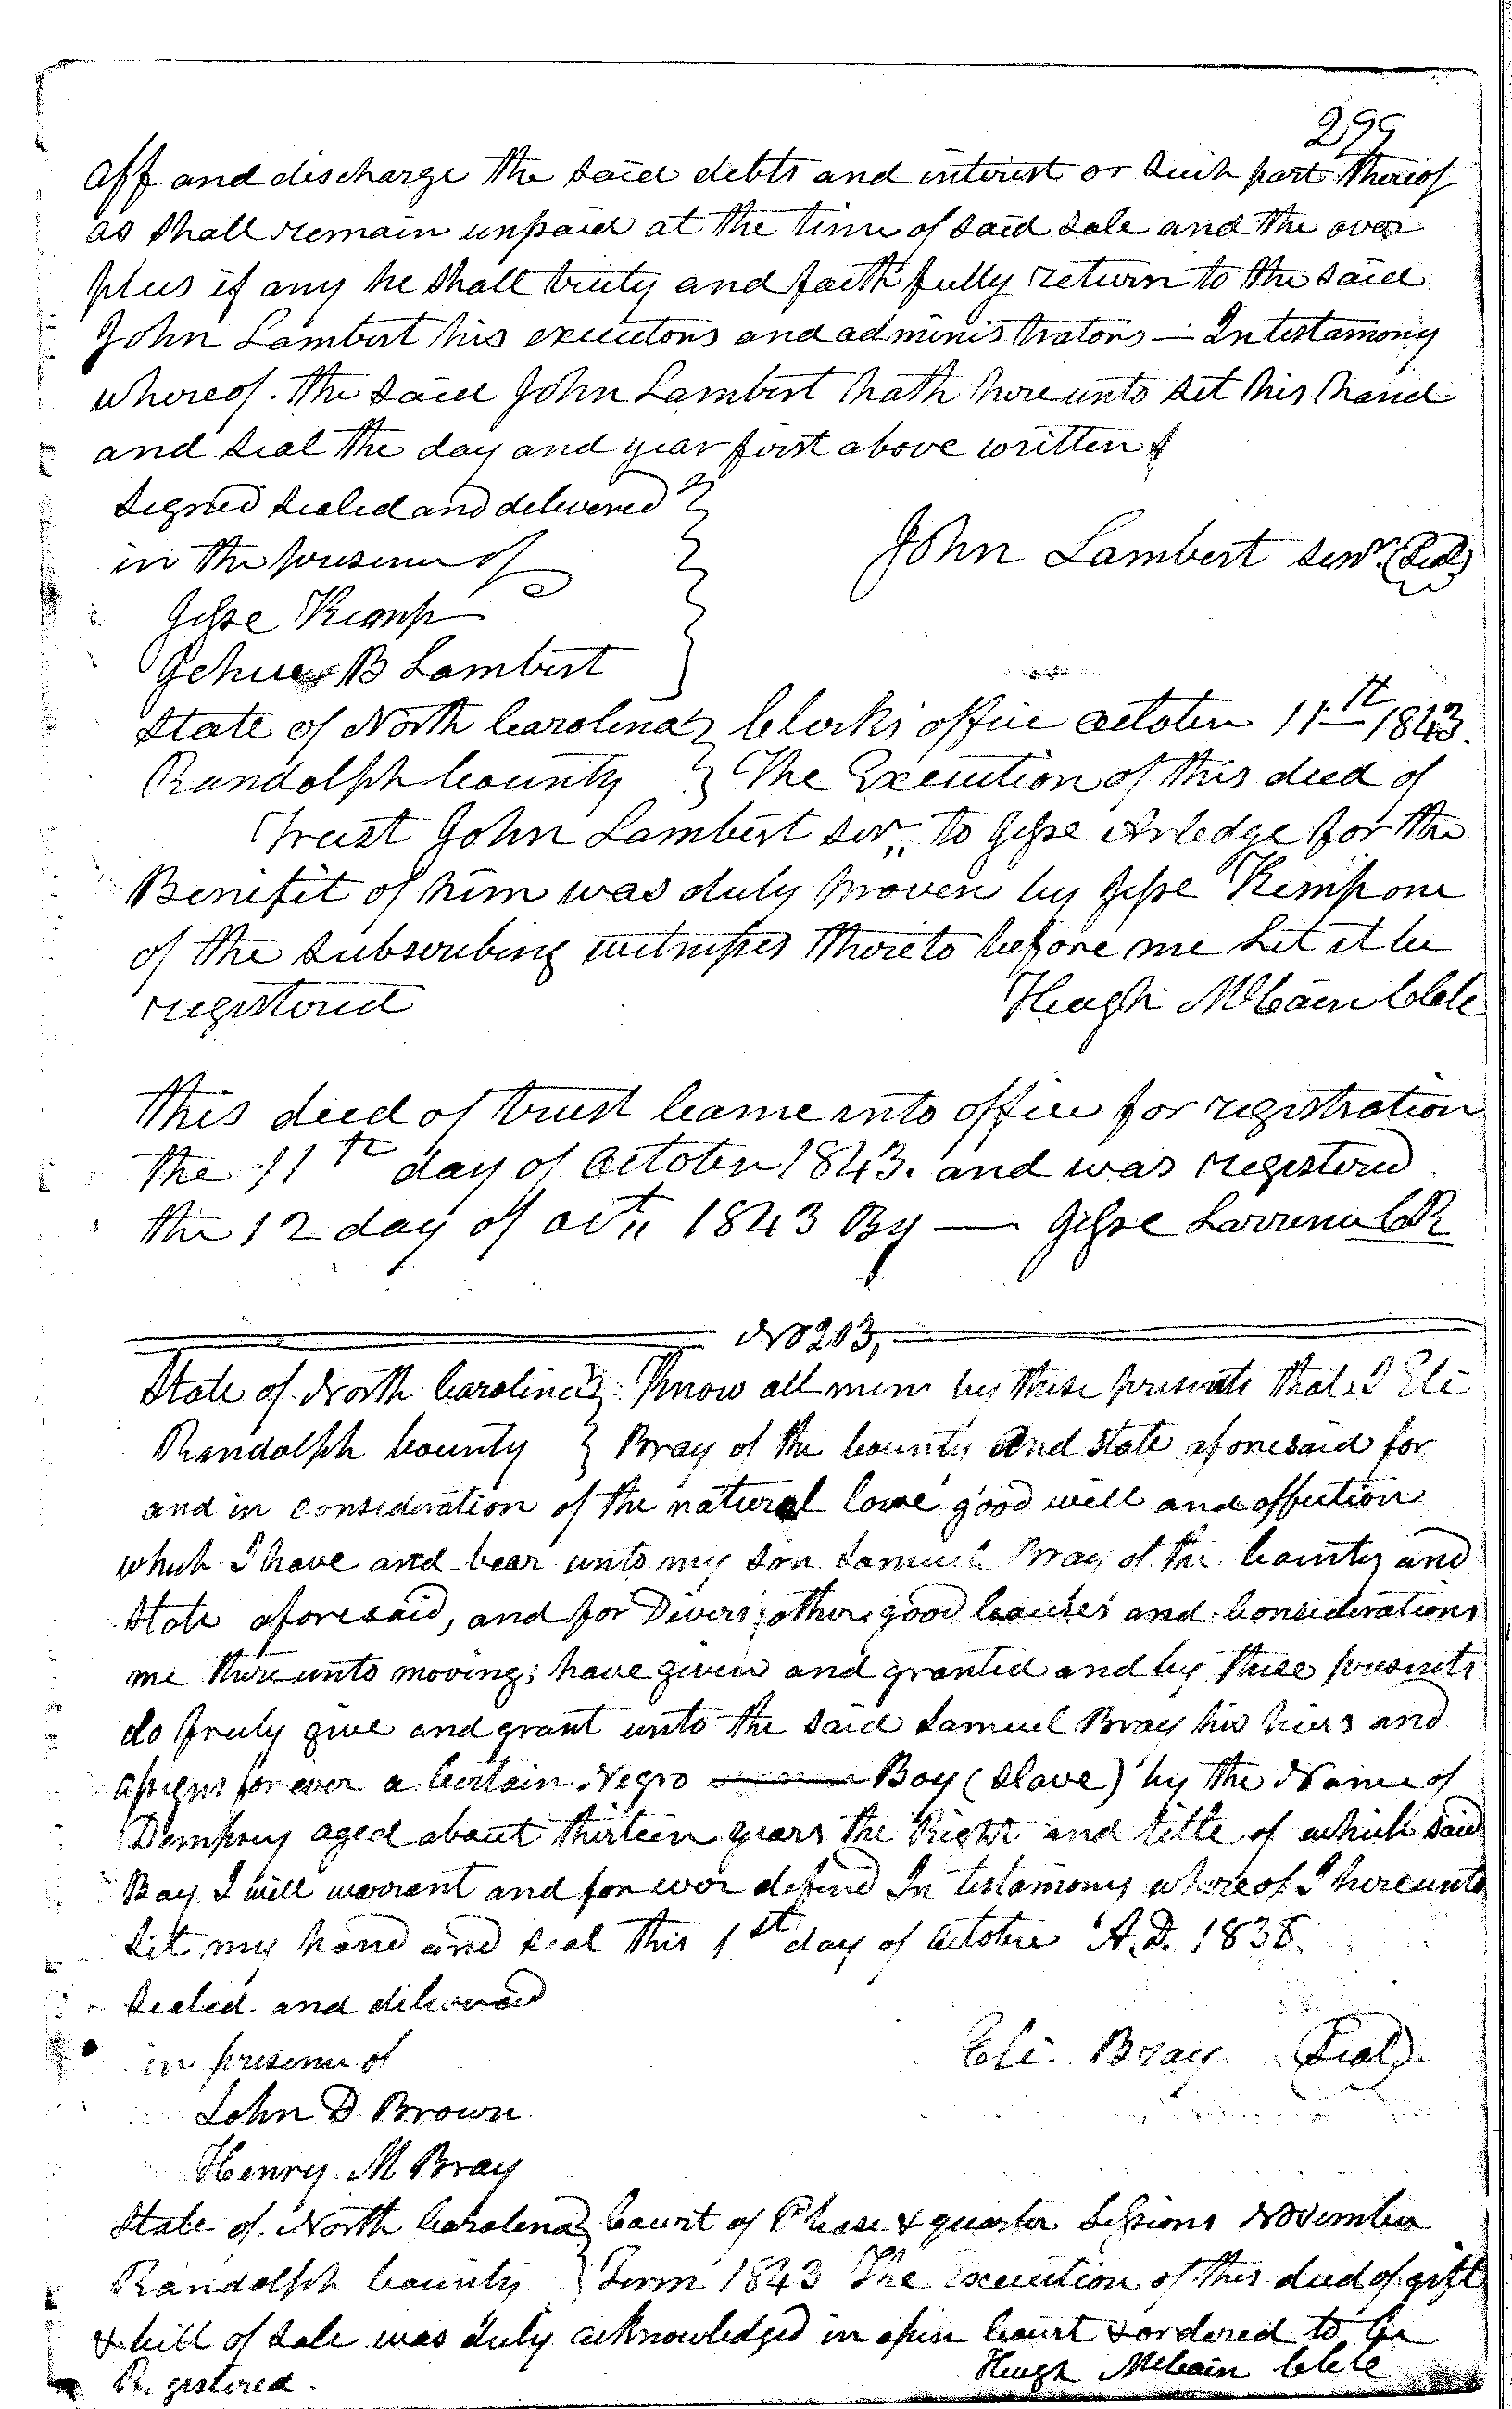 299
off and discharge the said debts and interest or such part thereof
as shall remain unpaid at the time of said sale and the over
plus if any he shall truly and faithfully return to the said
John Lambert his executors and administrators — In testamony
whereof. the said John Lambert hath hereunto set his hand
and seal the day and year first above written &
Signed sealed and delivered
in the presence of
John Lambert senr. (Seal)
Jesse Kemp
Jehu B Lambert
State of North Carolina Clerks office october 11th 1843.
Randolph County The Execution of this deed of
Trust John Lambert ser,, to Jesse Arledge for the
Benifit of him was duly proven by Jesse Kemp one
of the subscribing witnesses thereto before me Let it be
registered Hugh McCain Clk
This deed of trust came into office for registration
the 11th day of october 1843. and was registered
the 12 day of oct,, 1843 By — Jesse Larrence CR
No 203,
State of North Carolina Know all men by these presents that I Eli
Randolph County Bray of the County and State aforesaid for
and in consideration of the natural love good will and affection
which I have and bear unto my son Samuel Bray of the County and
State aforesaid, and for Divers other good causes and Considerations
me thereunto moving; have given and granted and by these presents
do freely give and grant unto the said Samuel Bray his hiers and
assigns for ever a Certain Negro Boy (Slave) by the Name of
Dempsey aged about thirteen years the Right and title of which said
Boy I will warrant and for ever defend In testamony whereof I hereunto
Set my hand and seal this 1st day of October A.D. 1838.
Sealed and delivered
in presence of
Eli Bray (Seal)
John D Brown
Henry M Bray
State of North Carolina Court of Please & quarter Sessions November
Randolph County Term 1843 The execution of this deed of gift
& bill of sale was duly acknowledged in open Court & ordered to be
Registered. Hugh McCain Clk